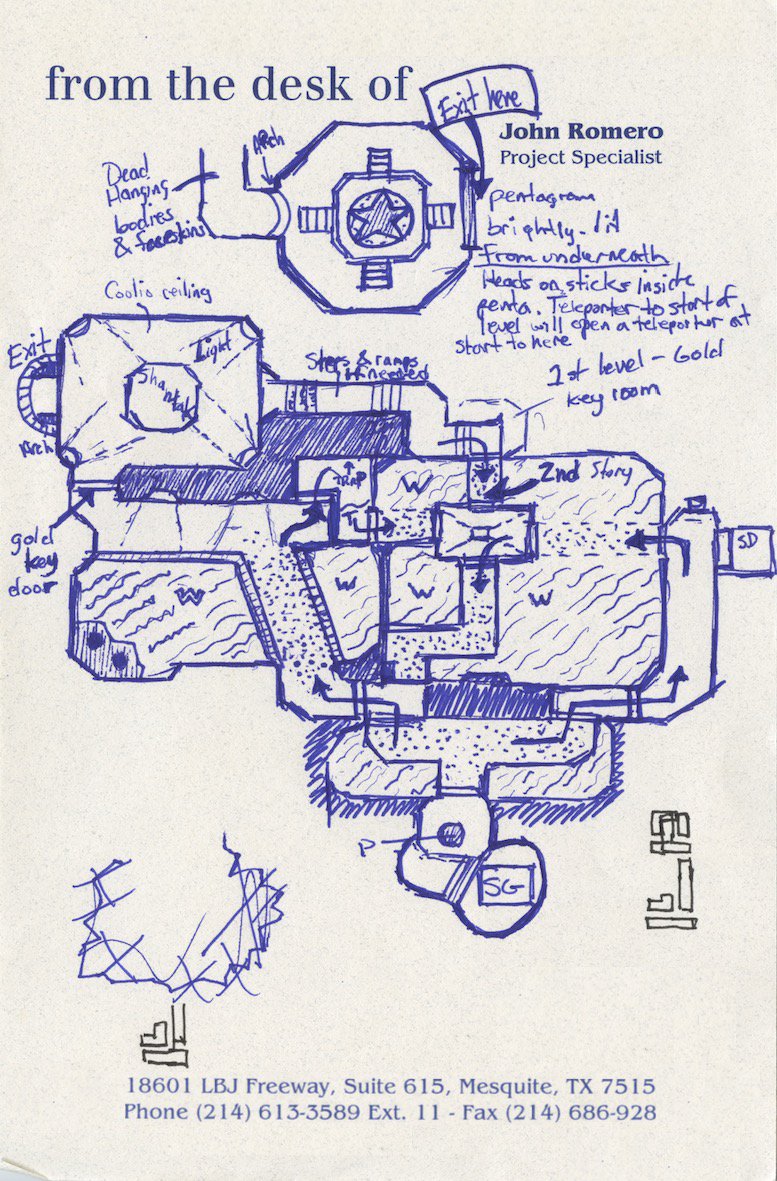 from the desk of
John Romero
Project Specialist
Exit here
Arch
Dead
Hanging
bodies
&
pentagram
brightly lit
From underneath
Heads on sticks inside
penta. Teleporter to start of
level will open a teleporter at
start to here
Coolio ceiling
Light
Exit
Arch
Steps & ramps
if needed
1st level - Gold
key room
2nd Story
TRAP
W
W
W
W
W
gold
key
door
SD
P
SG
18601 LBJ Freeway, Suite 615, Mesquite, TX 7515
Phone (214) 613-3589 Ext. 11 - Fax (214) 686-928